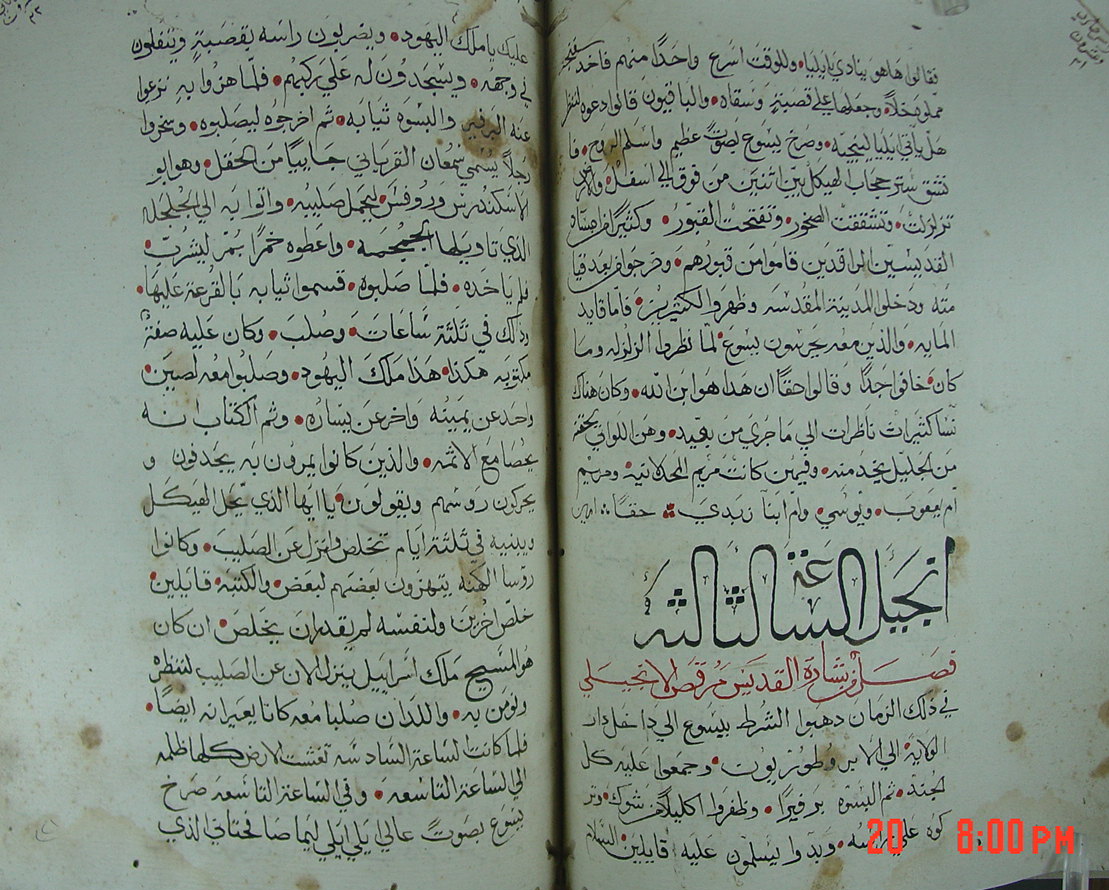 فقالوا هاهو ينادي يا ايليا وللوقت اسرع واحدًا منهم فاخد سفنجه
مملوه خلا وجعلها على قصبةٍ وسقاه والباقيون قالوا دعوه لننظر
هل ياتي ايليا لينجيه وصرخ يسوع بصوت عظيم واسلم الروح فا
نشق ستر حجاب الهيكل بين اثنين من فوق الى اسفل والارض
تزلزلت وتشققت الصخور وتفتحت القبور وكثيرًا من اجساد
القديسين الراقدين قاموا من قبورهم وخرجوا من بعد قيا
مته ودخلوا المدينة المقدسه وظهروا لكثيرين فاما قايد
المايه والذين معه يحرسون يسوع لما نظروا الزلزله وما
كان خافوا جدًا وقالوا حقًا ان هدا هو ابن الله وكان هناك
نسا كثيرات ناظرات الى ما جري من بعيد وهن اللواتي تبعنه
من الجليل يخدمنه وفيهن كانت مريم المجدلانية ومريم
ام يعقوب ويوسي وام ابنا زبدي حقًا امين
انجيل الساعة الثالثه
فصل من بشارة القديس مرقص الانجيلي
في ذلك الزمان دهبوا الشرط بيسوع الي داخل دار
الولاية الي الابروطوتريون وجمعوا عليه كل
الجند ثم البسوه برفيرًا وظفروا اكليلًا من شوك وتر
كوه على راسه وبدوا يسلمون عليه قايلين السلام
عليك يا ملك اليهود ويضربون راسه بقصبةٍ ويتفلون
في وجهه ويسجدون له على ركبهم فلما هزوا به نزعوا
عنه البرفير والبسوه ثيابه ثم اخرجوه ليصلبوه وسخروا
رجلًا يسمي سمعان القرياني جاييا من الحقل وهو ابو
الاسكندرس وروفس ليحمل صليبه واتوا به الي الجلجله
الذي تاويلها الجمجمه واعطوه خمرًا بمر ليشرب
فلم ياخده فلما صلبوه قسموا ثيابه بالقرعة عليها
ودلك في ثلثة ساعات وصلب وكان عليه صفة
مكتوبه هكذا هذا ملك اليهود وصلبوا معه لصين
واحد عن يمينه واخر عن يساره وثم الكتاب انه
يحصا مع الاثمه والذين كانوا يمرون به يجدفون و
يحركون روسهم ويقولون يا ايها الذي يحل الهيكل
ويبنيه في ثلثة ايام تخلص وانزل عن الصليب وكانوا
روسا الكهنه يتهزون بعضهم لبعض والكتبة قايلين
خلص اخرين ولنفسه لم يقدر ان يخلص ان كان
هو المسيح ملك اسراييل ينزل الان عن الصليب لننظره
ونومن به واللدان صلبا معه كانا يعيرانه ايضًا
فلما كانت الساعة السادسه تغشت الارض كلها ظلمه
الي الساعة التاسعه وفي الساعة التاسعه صرخ
يسوع بصوت عالي ايلي ايلي ليما صافختاني الذي
20 8:00 PM